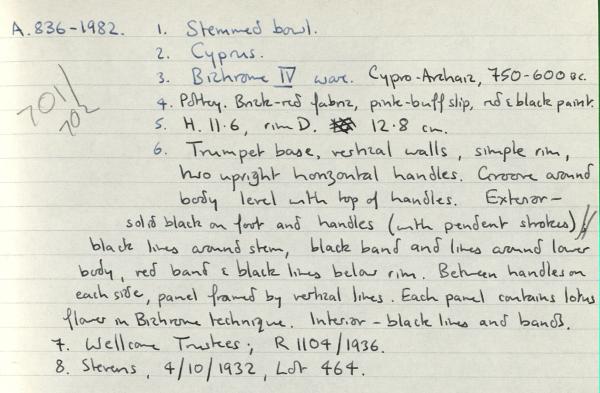 A.836-1982. 1. Stemmed bowl.
2. Cyprus.
3. Bichrome IV ware. Cypro-Archaic, 750-600 BC.
701/
702
4. Pottery. Brick-red fabric, pink-buff slip, red & black paint.
5. H. 11.6, rim D. 12.8 cm.
6. Trumpet base, vertical walls, simple rim,
two upright horizontal handles. Groove around
body level with top of handles. Exterior-
solid black on foot and handles (with pendent strokes)//
black lines around stem, black band and lines around lower
body, red band & black lines below rim. Between handles on
each side, panel framed by vertical lines. Each panel contains lotus
flower in Bichrome technique. Interior - black lines and bands.
7. Wellcome Trustees; R 1104/1936.
8. Stevens, 4/10/1932, Lot 464.